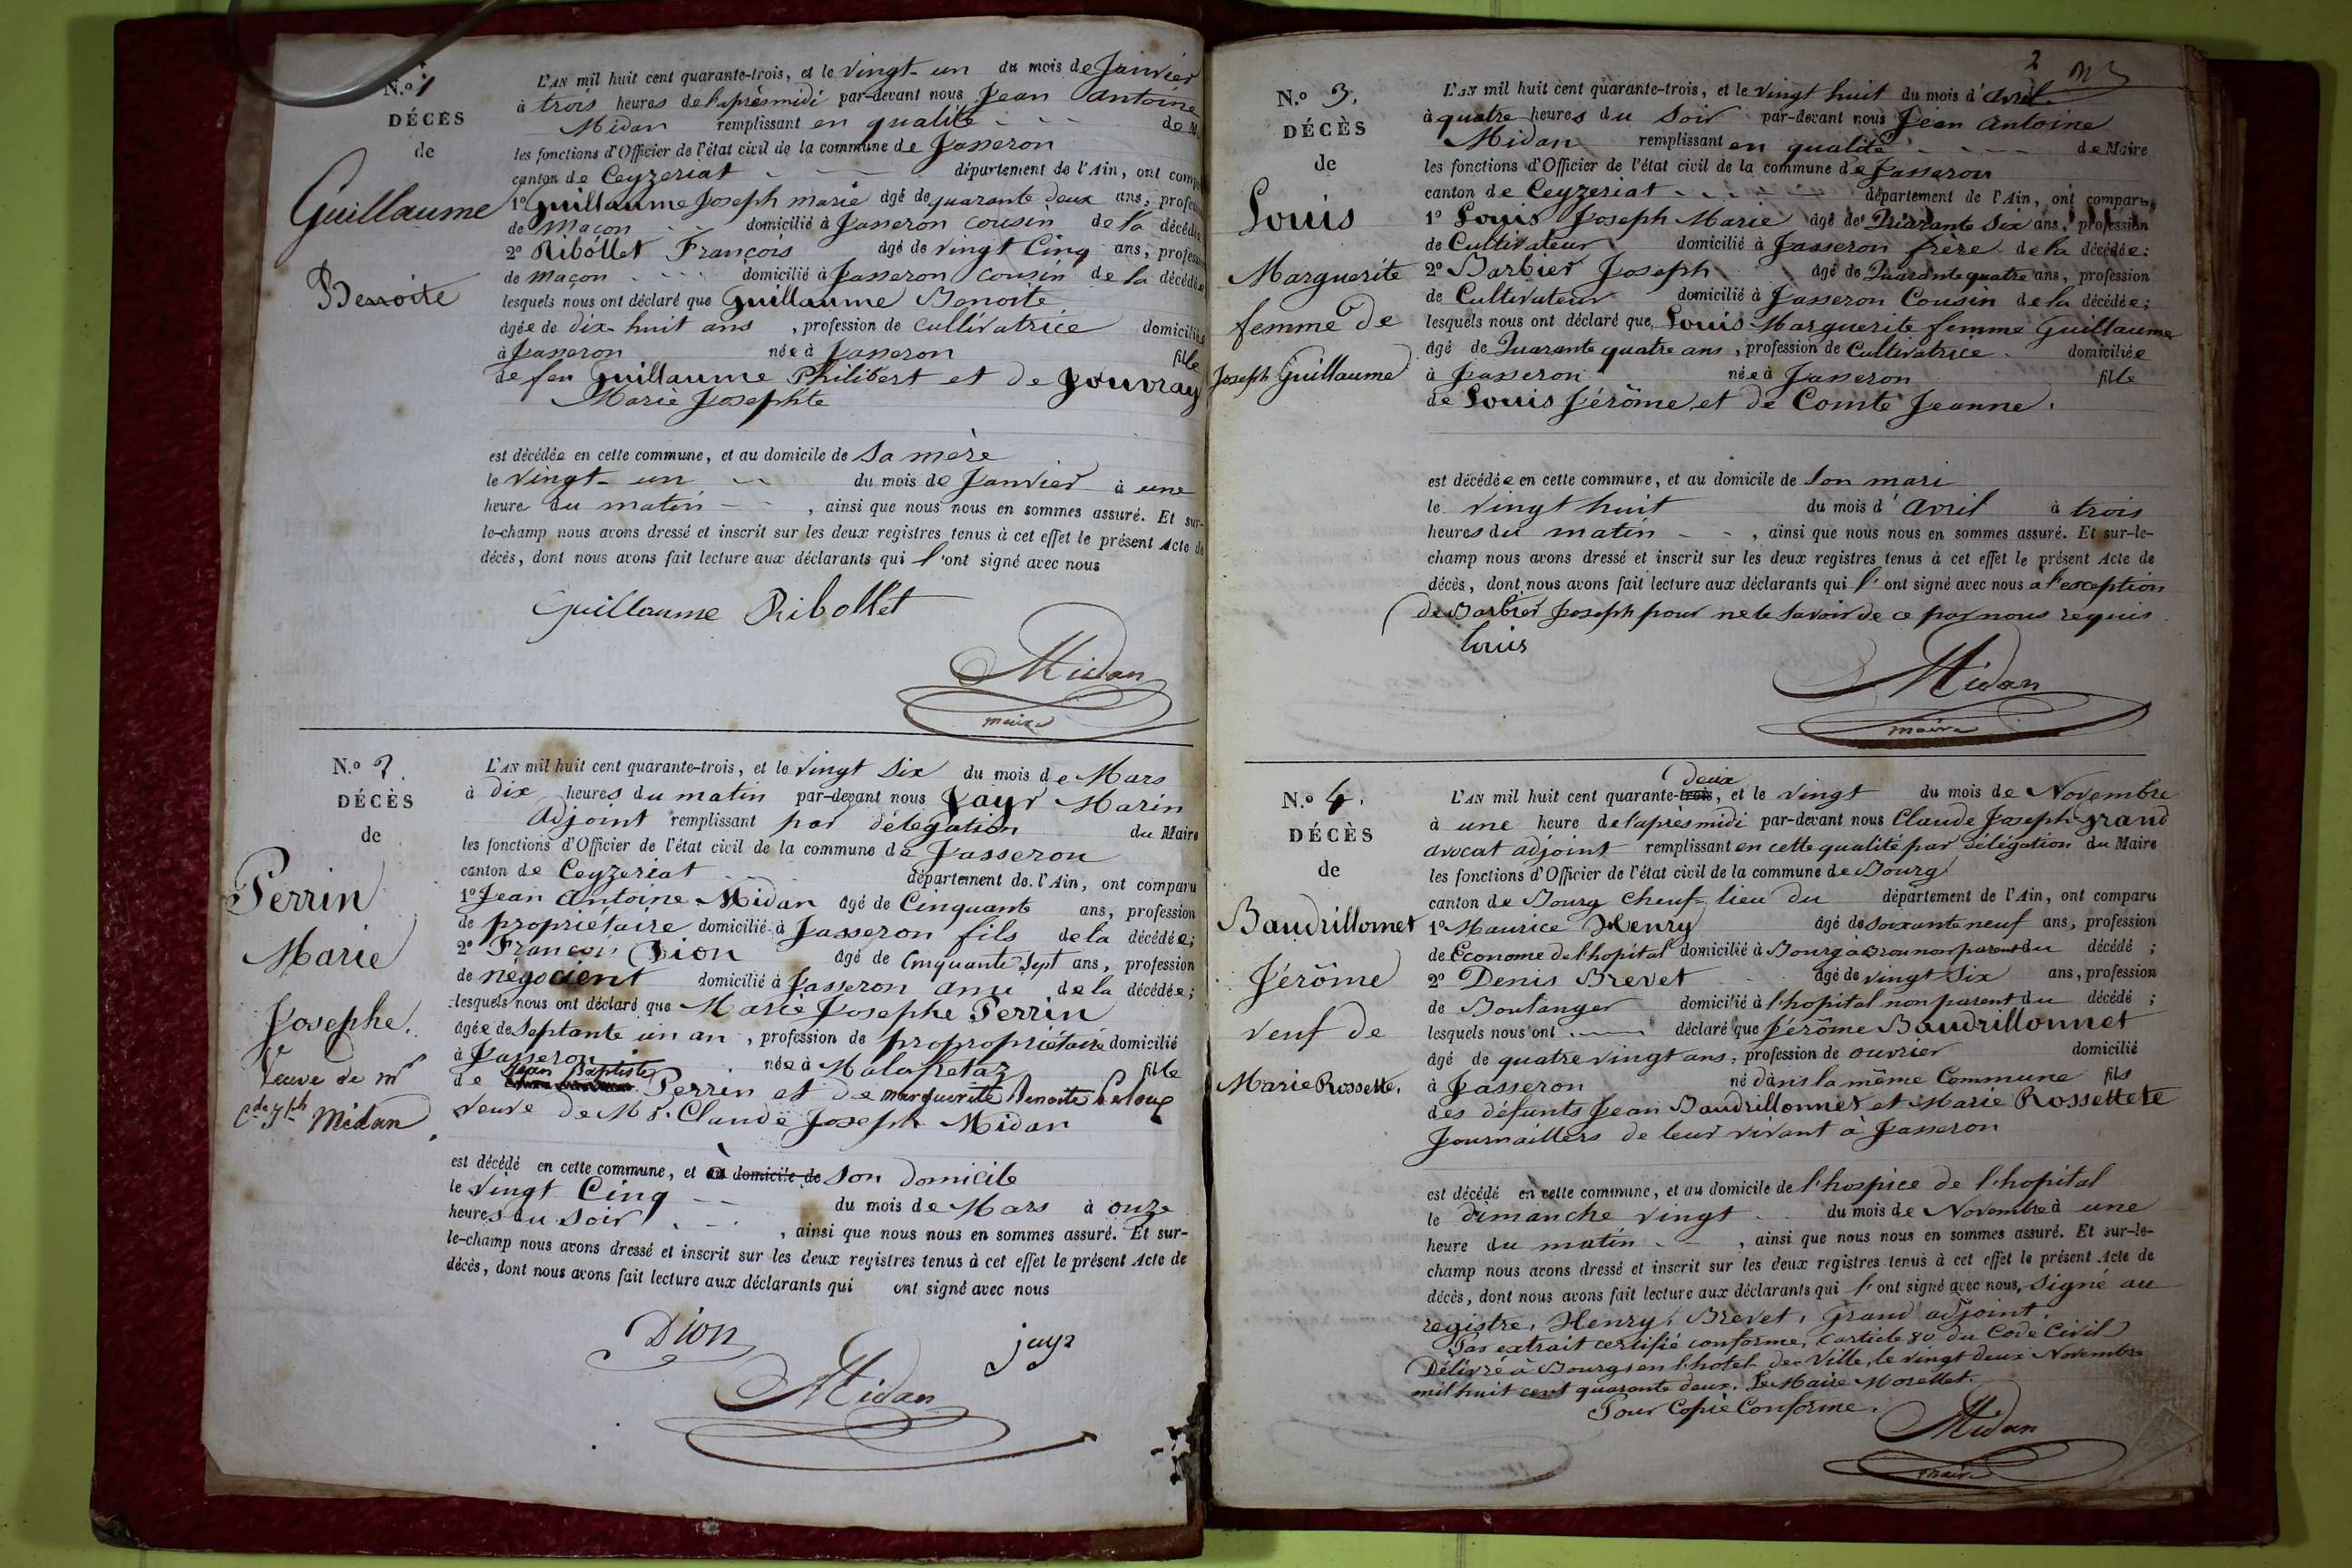 N.º 1
DÉCÈS
de
Guillaume
Benoite
L'AN mil huit cent quarante-trois, et le vingt-un du mois de Janvier
à trois heures de l'aprèsmidi par-devant nous Jean Antoine
Midan remplissant en qualité de M
les fonctions d'Officier de l'état civil de la commune de Jasseron
canton de Ceyzeriat département de l'Ain, ont comp
1º Guillaume Joseph marie agé de quarante deux ans, profes
de maçon domicilié à Jasseron cousin de la décédé
2º Ribollet François agé de vingt Cinq ans, profess
de maçon domicilié à Jasseron cousin de la décédée
lesquels nous ont déclaré que Guillaume Benoite
agée de dix-huit ans, profession de cultivatrice domiciliée
à Jasseron née à Jasseron fille
de feu Guillaume Philibert et de Jouvray
Marie Josephte
est décédée en cette commune, et au domicile de Sa mère
le vingt-un du mois de Janvier à une
heure du matin, ainsi que nous nous en sommes assuré. Et sur-
le-champ nous avons dressé et inscrit sur les deux registres tenus à cet effet le présent Acte de
décès, dont nous avons fait lecture aux déclarants qui l'ont signé avec nous
Guillaume Ribollet
Midan
maire
N.º 2.
DÉCÈS
de
Perrin
Marie
Josephe.
Veuve de mr
Cde Jph Midan
L'AN mil huit cent quarante-trois, et le vingt Six du mois de Mars
à dix heures du matin par-devant nous Jayr Marin
Adjoint remplissant par délégation du Maire
les fonctions d'Officier de l'état civil de la commune de Jasseron
canton de Ceyzeriat département de l'Ain, ont comparu
1º Jean Antoine Midan agé de Cinquante ans, profession
de propriétaire domicilié à Jasseron fils de la décédée;
2º François Dion agé de Cinquante Sept ans, profession
de négocient domicilié à Jasseron ami de la décédée;
lesquels nous ont déclaré que Marie Josephe Perrin
agée de Septante un an, profession de propropriétaire domicilié
à Jasseron née à Malafretaz fille
de Jean Baptiste Perrin et de marguerite Benoite
veuve de Mr. Claude Joseph Midan
est décédé en cette commune, et à au domicile de Son domicile
le vingt Cinq du mois de Mars à onze
heures du Soir, ainsi que nous nous en sommes assuré. Et sur-
le-champ nous avons dressé et inscrit sur les deux registres tenus à cet effet le présent Acte de
décès, dont nous avons fait lecture aux déclarants qui ont signé avec nous
Dion jayr
Midan
2
N.º 3.
DÉCÈS
de
Louis
Marguerite
femme de
Joseph Guillaume
L'AN mil huit cent quarante-trois, et le vingt huit du mois d'avril
à quatre heures du soir par-devant nous Jean Antoine
Midan remplissant en qualité de Maire
les fonctions d'Officier de l'état civil de la commune de Jasseron
canton de Ceyzeriat département de l'Ain, ont comparu
1º Louis Joseph Marie agé de Quarante Six ans, profession
de Cultivateur domicilié à Jasseron frère de la décédée;
2º Barbier Joseph agé de Quarante quatre ans, profession
de Cultivateur domicilié à Jasseron Cousin de la décédée;
lesquels nous ont déclaré que Louis Marguerite femme Guillaume
âgé de Quarante quatre ans, profession de Cultivatrice domiciliée
à Jasseron née à Jasseron fille
de Louis Jérôme et de Comte Jeanne.
est décédée en cette commune, et au domicile de Son mari
le vingt huit du mois d'avril à trois
heures du matin, ainsi que nous nous en sommes assuré. Et sur-le-
champ nous avons dressé et inscrit sur les deux registres tenus à cet effet le présent Acte de
décès, dont nous avons fait lecture aux déclarants qui l'ont signé avec nous a l'exception
de Barbier Joseph pour ne le savoir de ce par nous requis
Louis
Midan
maire
N.º 4.
DÉCÈS
de
Baudrillomet
Jérôme
veuf de
Marie Rossette.
deux
L'AN mil huit cent quarante-trois, et le vingt du mois de Novembre
à une heure de l'apresmidi par-devant nous Claude Joseph Grand
avocat adjoint remplissant en cette qualité par délégation du Maire
les fonctions d'Officier de l'état civil de la commune de Bourg
canton de Bourg cheuf-lieu du département de l'Ain, ont comparu
1º Maurice Henry âgé de soixante neuf ans, profession
de Econome de l'hopital domicilié à Bourg à Brou non parent du décédé;
2º Denis Brevet âgé de vingt Six ans, profession
de Boulanger domicilié à l'hopital non parent du décédé;
lesquels nous ont déclaré que Jérôme Baudrillonnet
âgé de quatre vingt ans, profession de ouvrier domicilié
à Jasseron né dans la même Commune fils
des défunts Jean Baudrillonnet et Marie Rossettete
Journaillers de leur vivant à Jasseron
est décédé en cette commune, et au domicile de l'hospice de l'hopital
le dimanche vingt du mois de Novembre à une
heure du matin, ainsi que nous nous en sommes assuré. Et sur-le-
champ nous avons dressé et inscrit sur les deux registres tenus à cet effet le présent Acte de
décès, dont nous avons fait lecture aux déclarants qui l'ont signé avec nous, signé au
registre, Henry, Brevet, Grand adjoint.
Par extrait certifié conforme, (article 80 du Code Civil)
Délivré à Bourg en l'hotel de Ville, le vingt deux Novembre
mil huit cent quarante deux. Le Maire Morellet.
Pour Copie Conforme.
Midan
maire